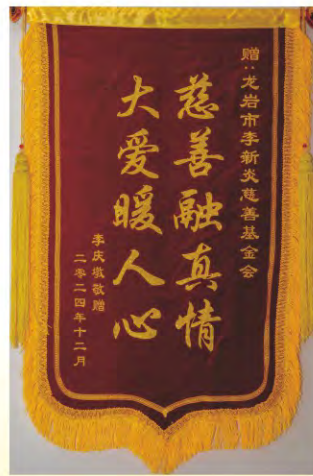 赠:龙岩市李新炎慈善基金会
慈善融真情
大爱暖人心
李庆墩敬赠
二零二四年十二月